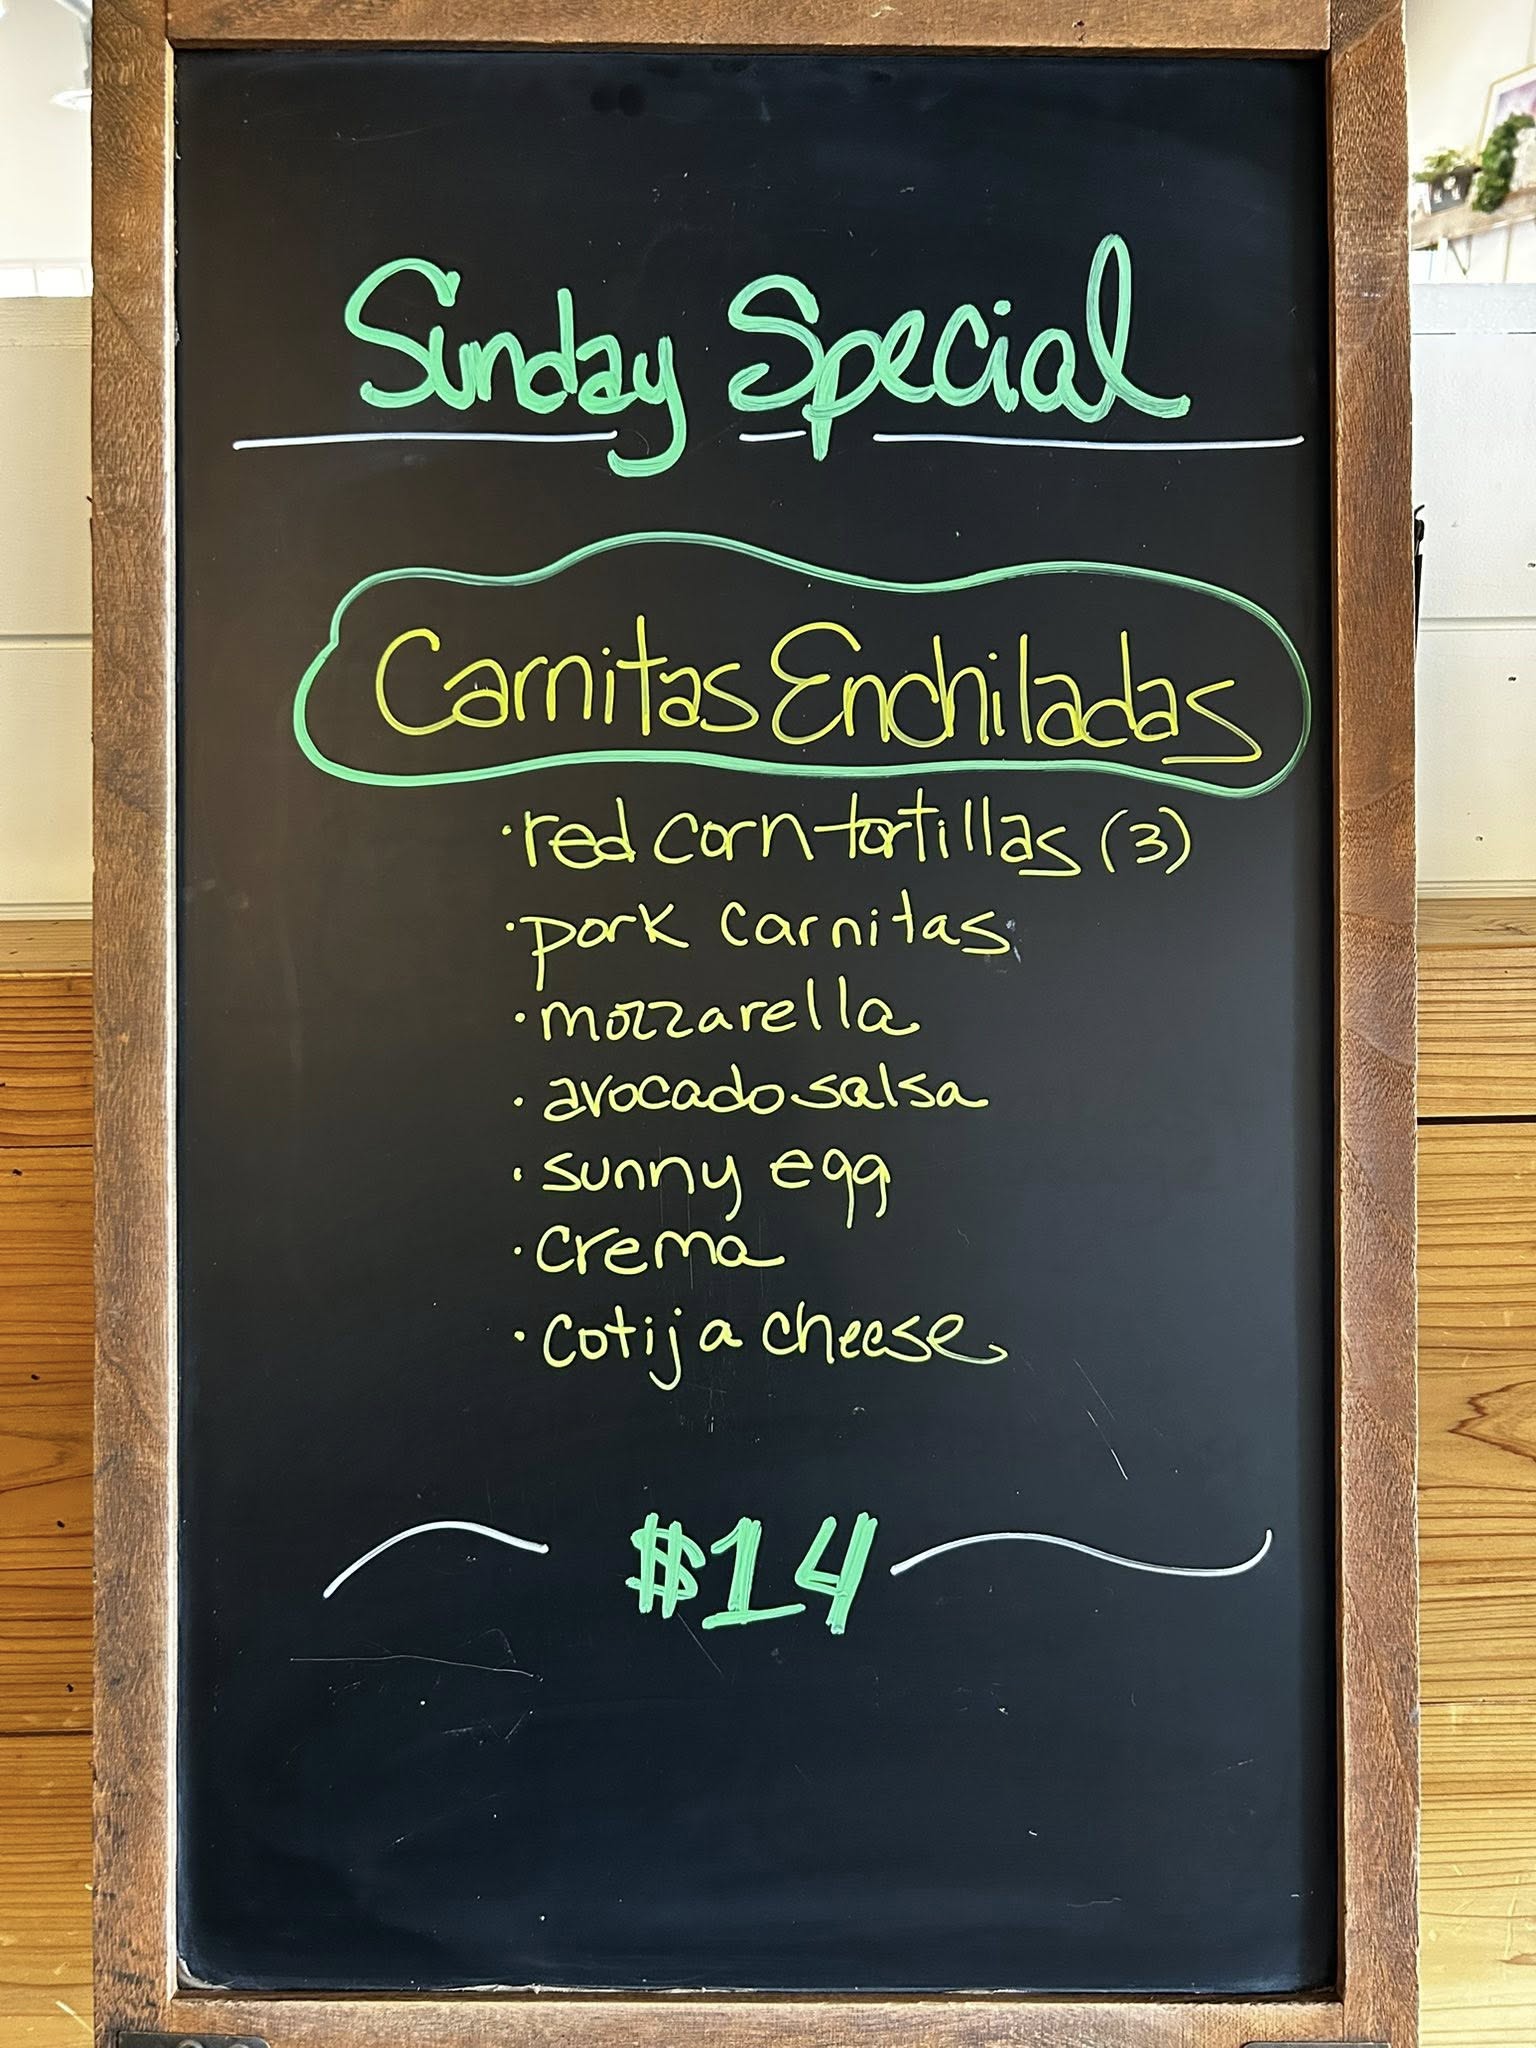 Sunday Special
Carnitas Enchiladas
·red corn tortillas (3)
·pork carnitas
·mozzarella
·avocado salsa
·sunny egg
·crema
·cotija cheese
$14